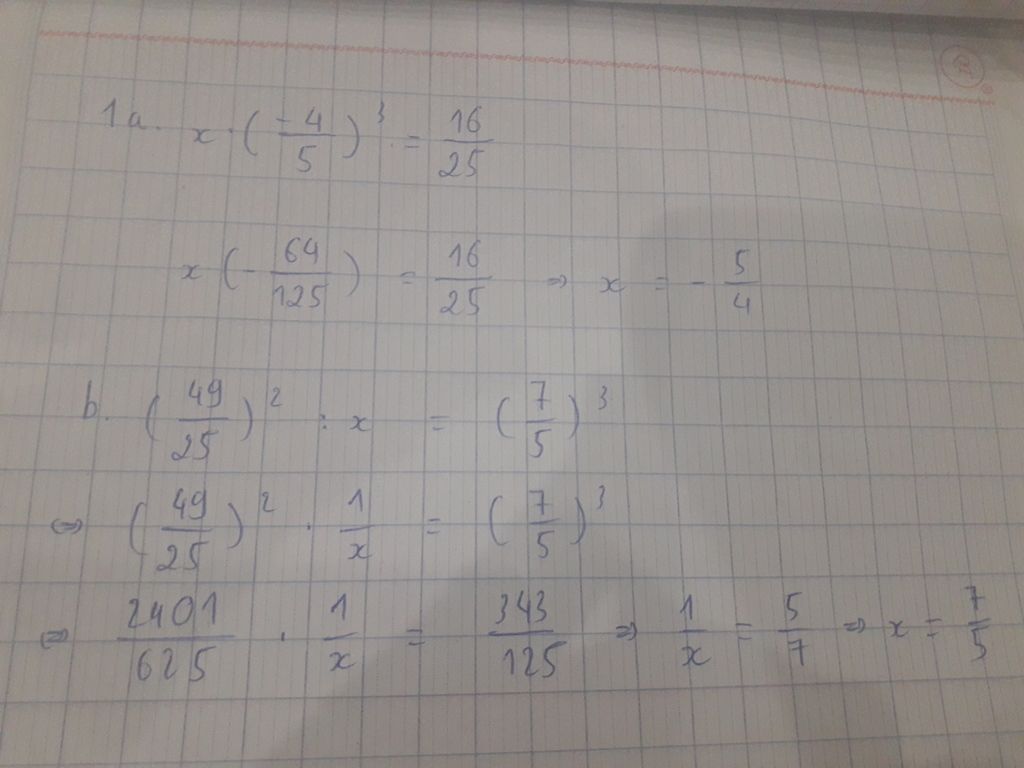 1a. x · (-4/5)³ = 16/25
x (- 64/125) = 16/25 ⇒ x = - 5/4
b. (49/25)² : x = (7/5)³
⇔ (49/25)² · 1/x = (7/5)³
⇔ 2401/625 · 1/x = 343/125 ⇒ 1/x = 5/7 ⇒ x = 7/5